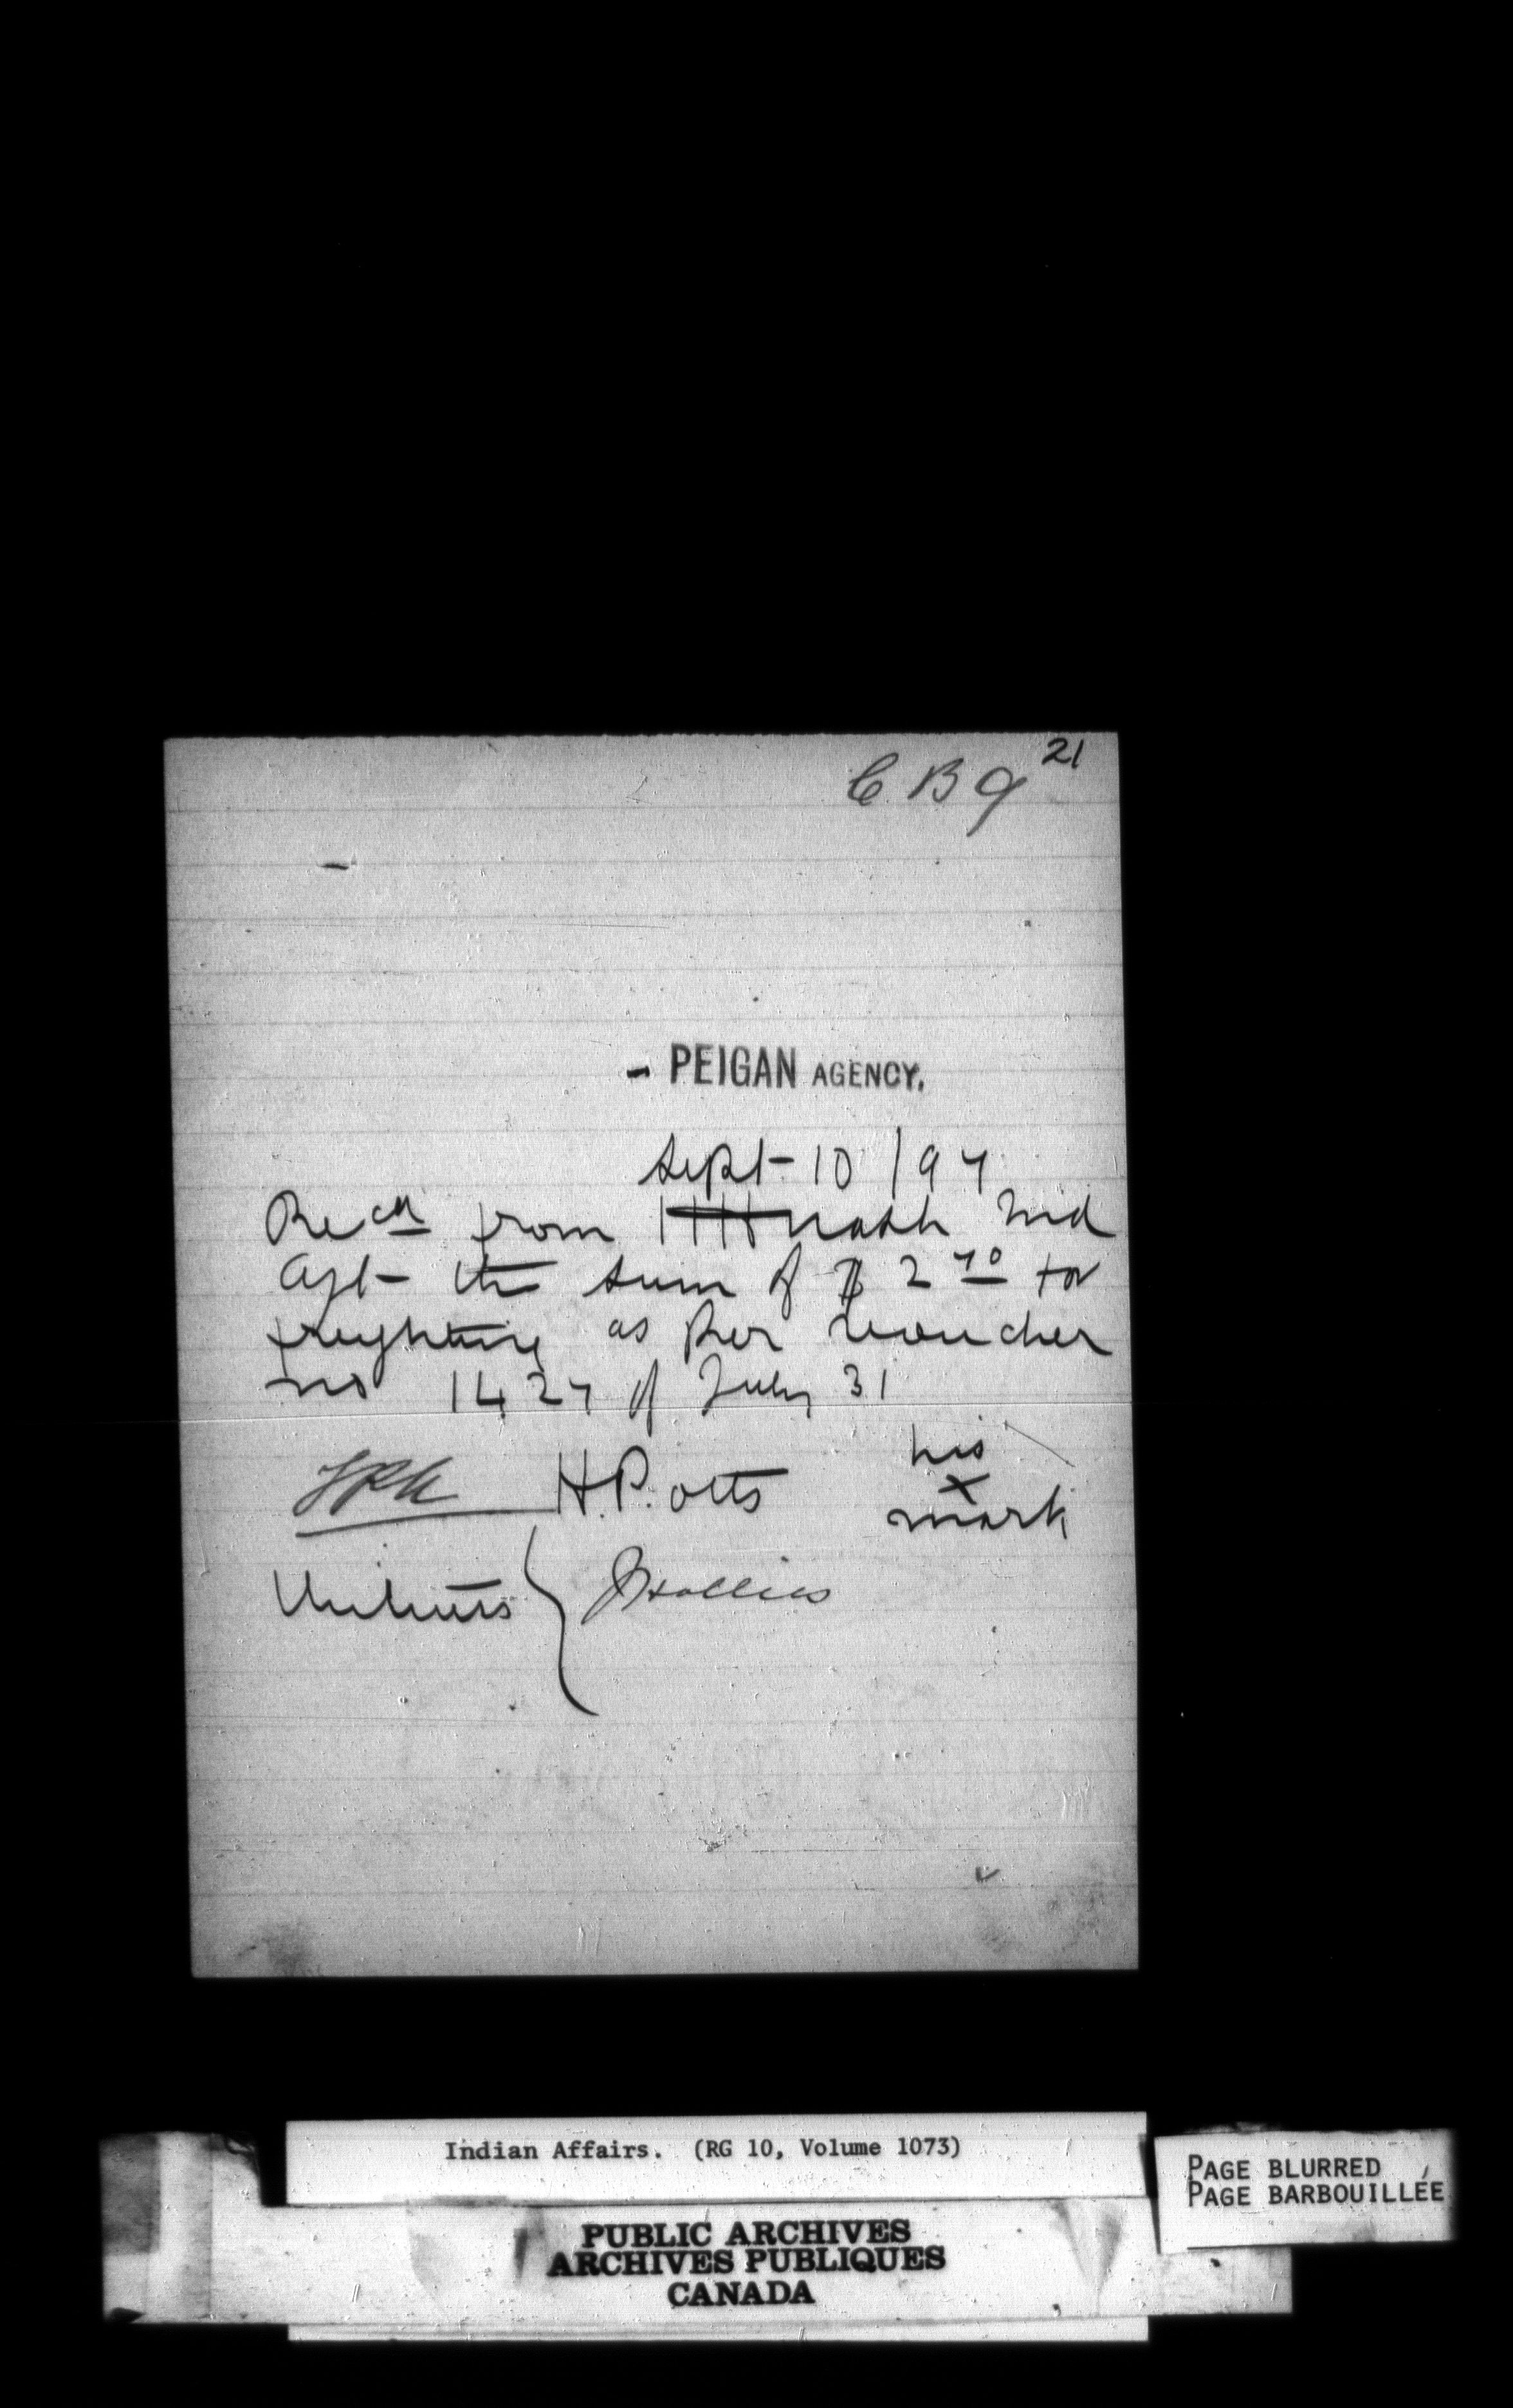 21
C B 9
- PEIGAN AGENCY.
Sept- 10 / 97
Recd from HH Nash Ind
Agt the sum of $ 2 70 for
freighting as per voucher
no 1427 of July 31
H. Potts his
x
mark
Witness } J Hollies
Indian Affairs. (RG 10, Volume 1073)
PAGE BLURRED
PAGE BARBOUILLÉE
PUBLIC ARCHIVES
ARCHIVES PUBLIQUES
CANADA